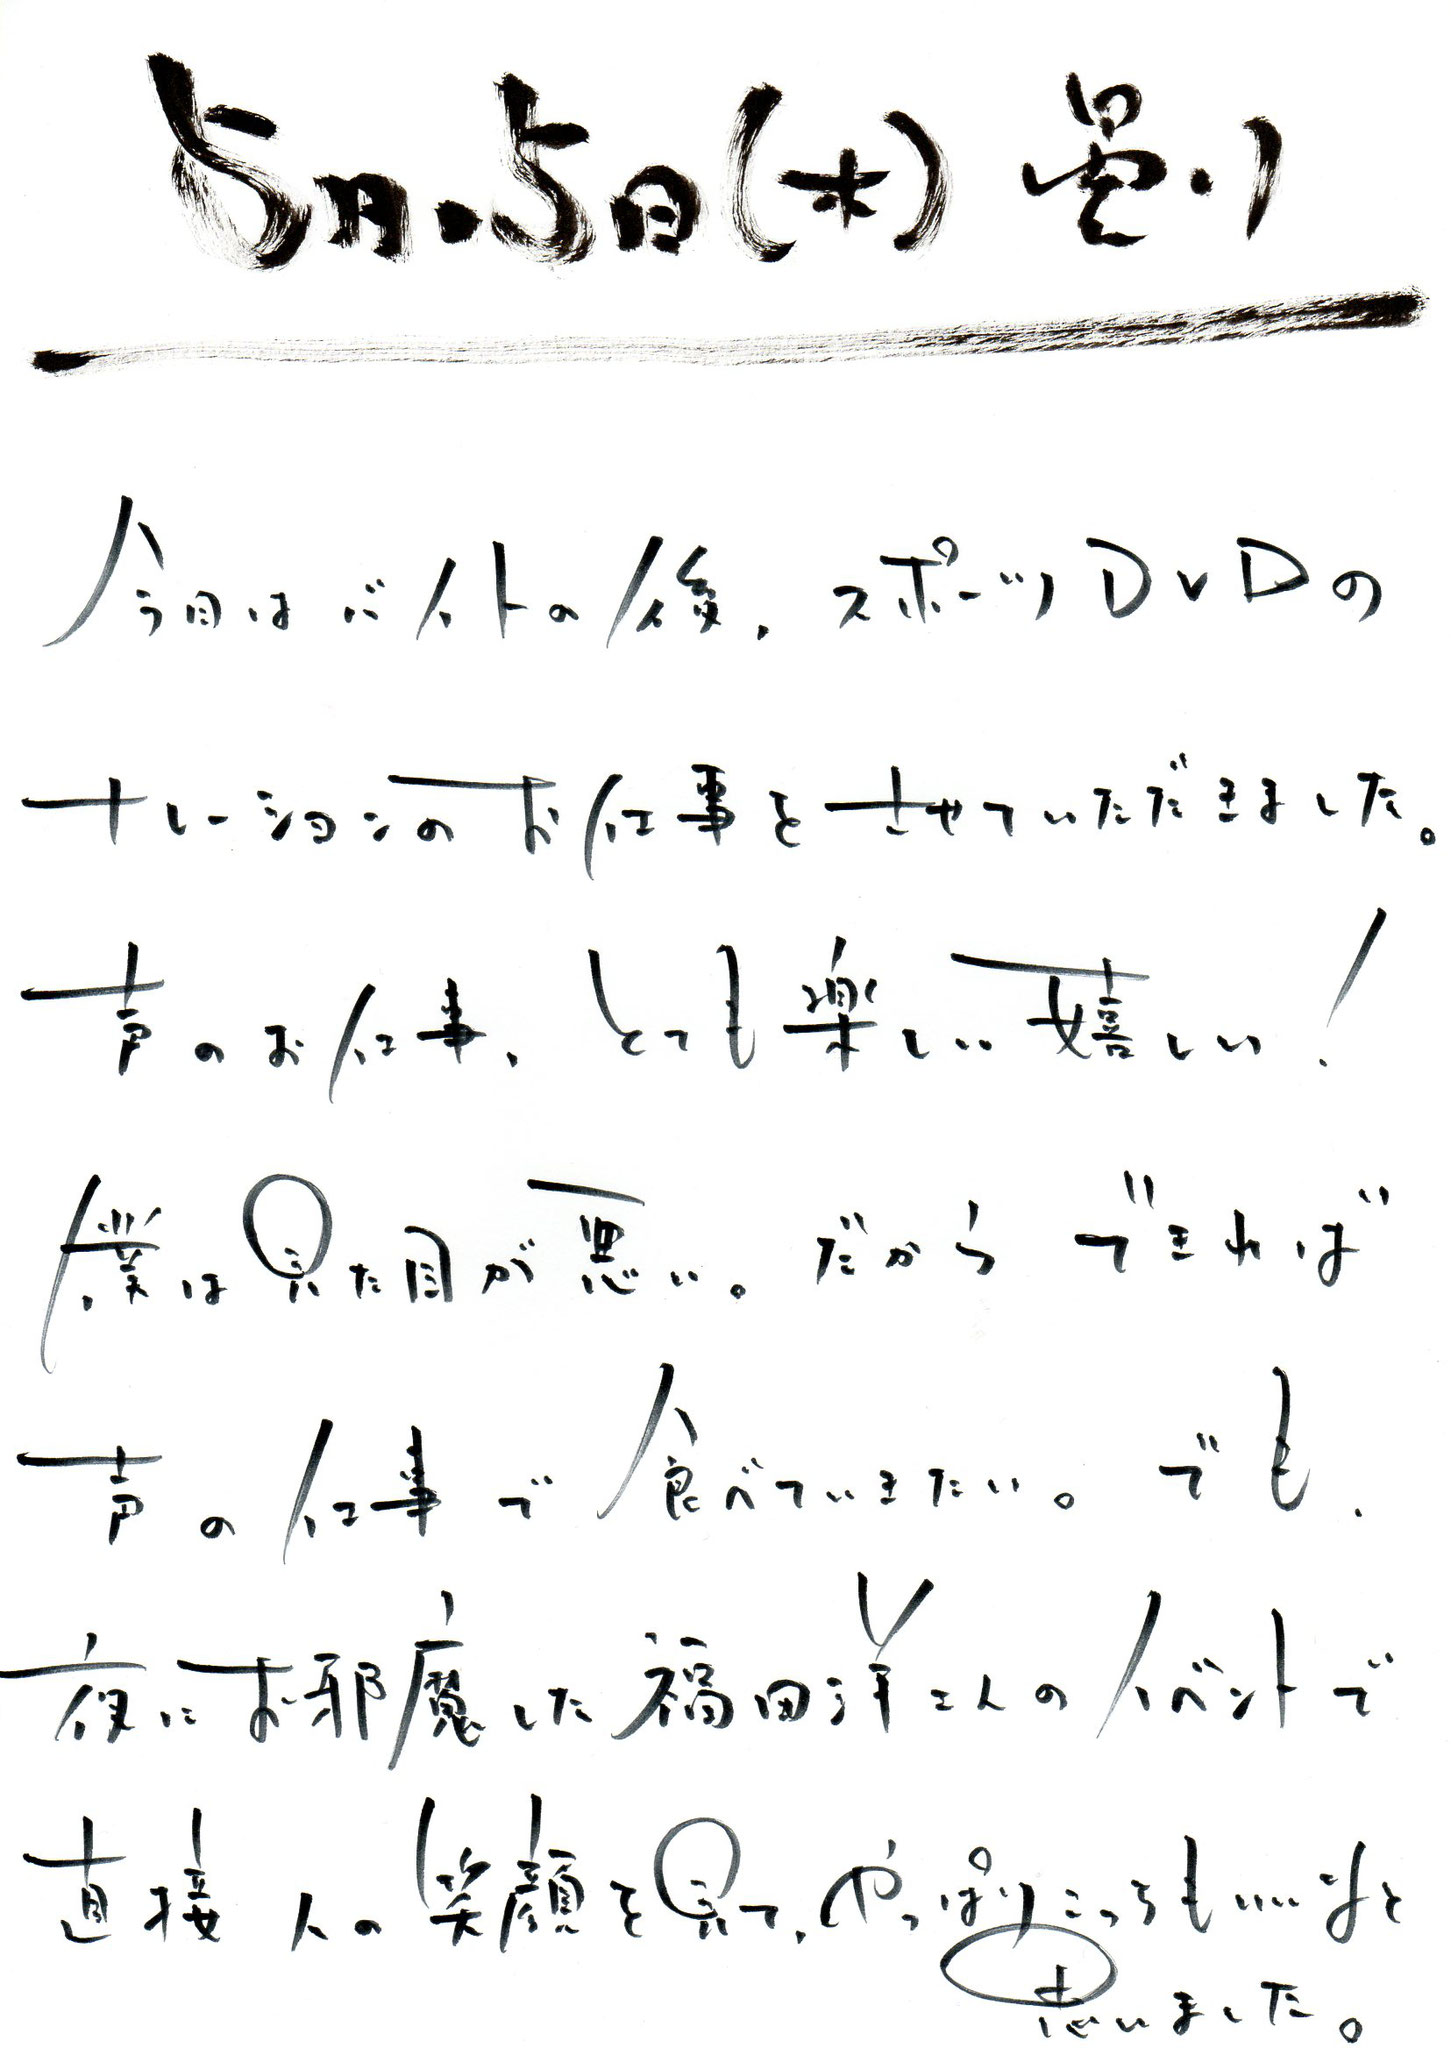 5月.5日(木) 曇り
今日はバイトの後、スポーツDVDの
ナレーションのお仕事をさせていただきました。
声のお仕事、とても楽しい嬉しい!
僕は見た目が悪い。だから できれば
声の仕事で食べていきたい。でも、
夜にお邪魔した福田洋さんのイベントで
直接人の笑顔を見て、やっぱりこっちもいいなと
思いました。